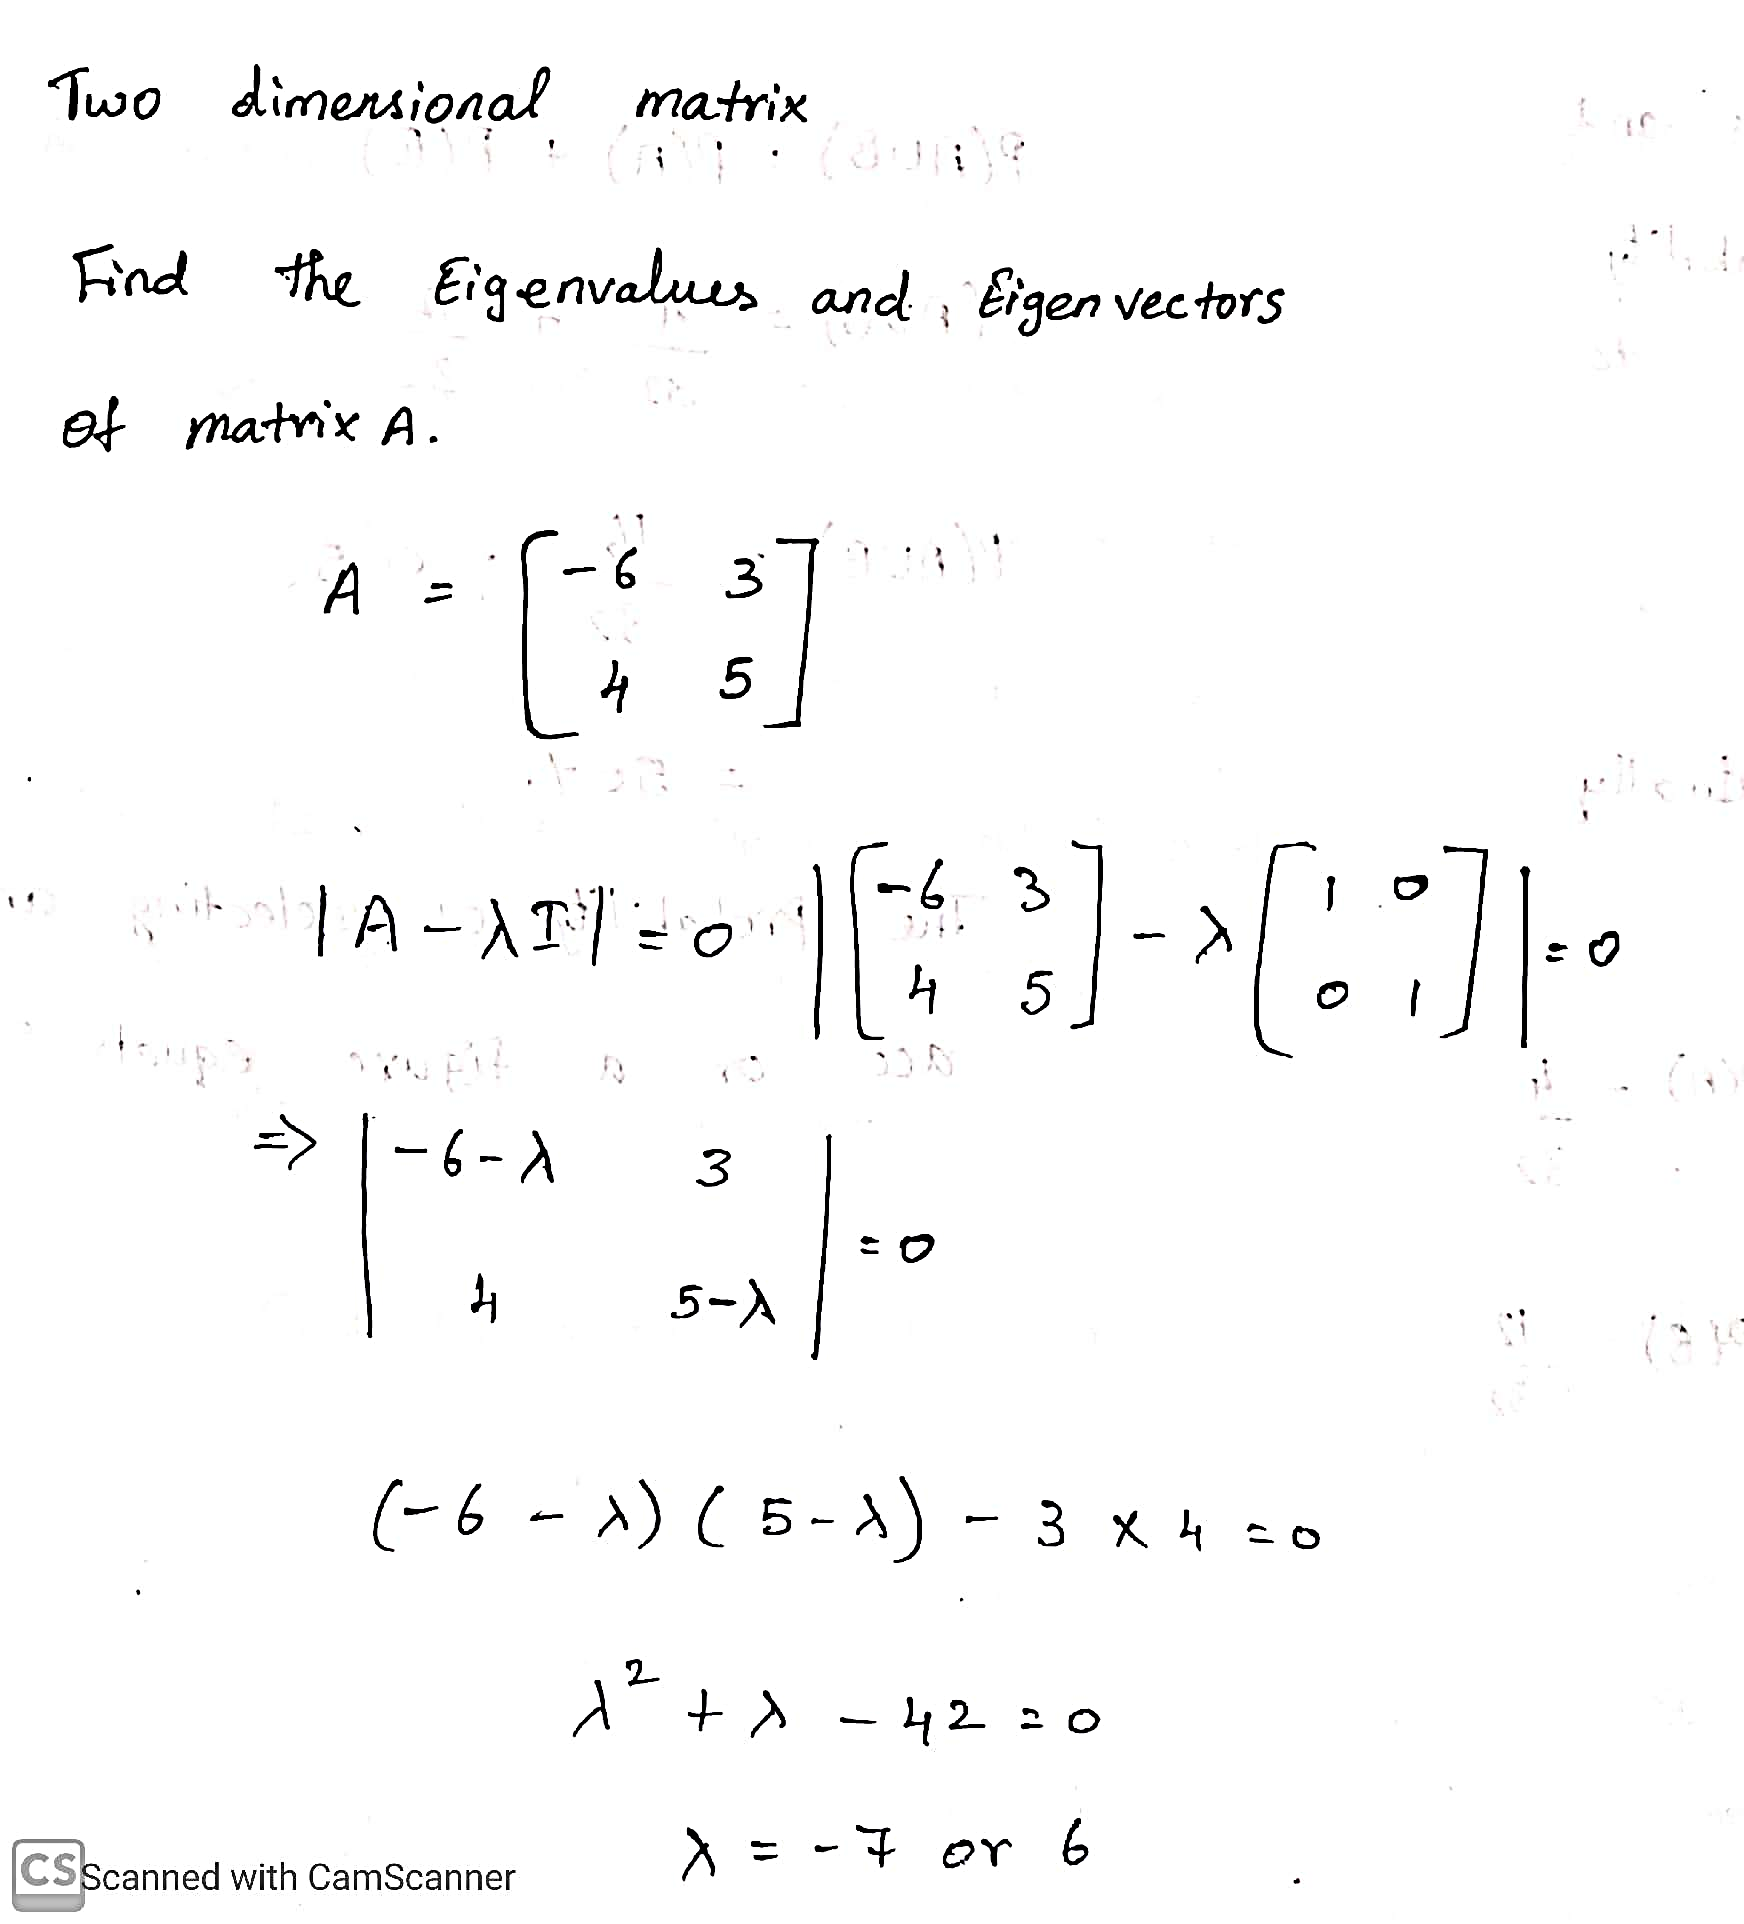 Two dimensional matrix
Find the Eigenvalues and Eigen vectors
of matrix A.
A = [ -6 3
4 5 ]
|A - λI| = 0 | [ -6 3
4 5 ] - λ [ 1 0
0 1 ] | = 0
=> | -6-λ 3
4 5-λ | = 0
(-6 - λ) (5-λ) - 3 x 4 = 0
λ² + λ - 42 = 0
λ = -7 or 6
CS Scanned with CamScanner